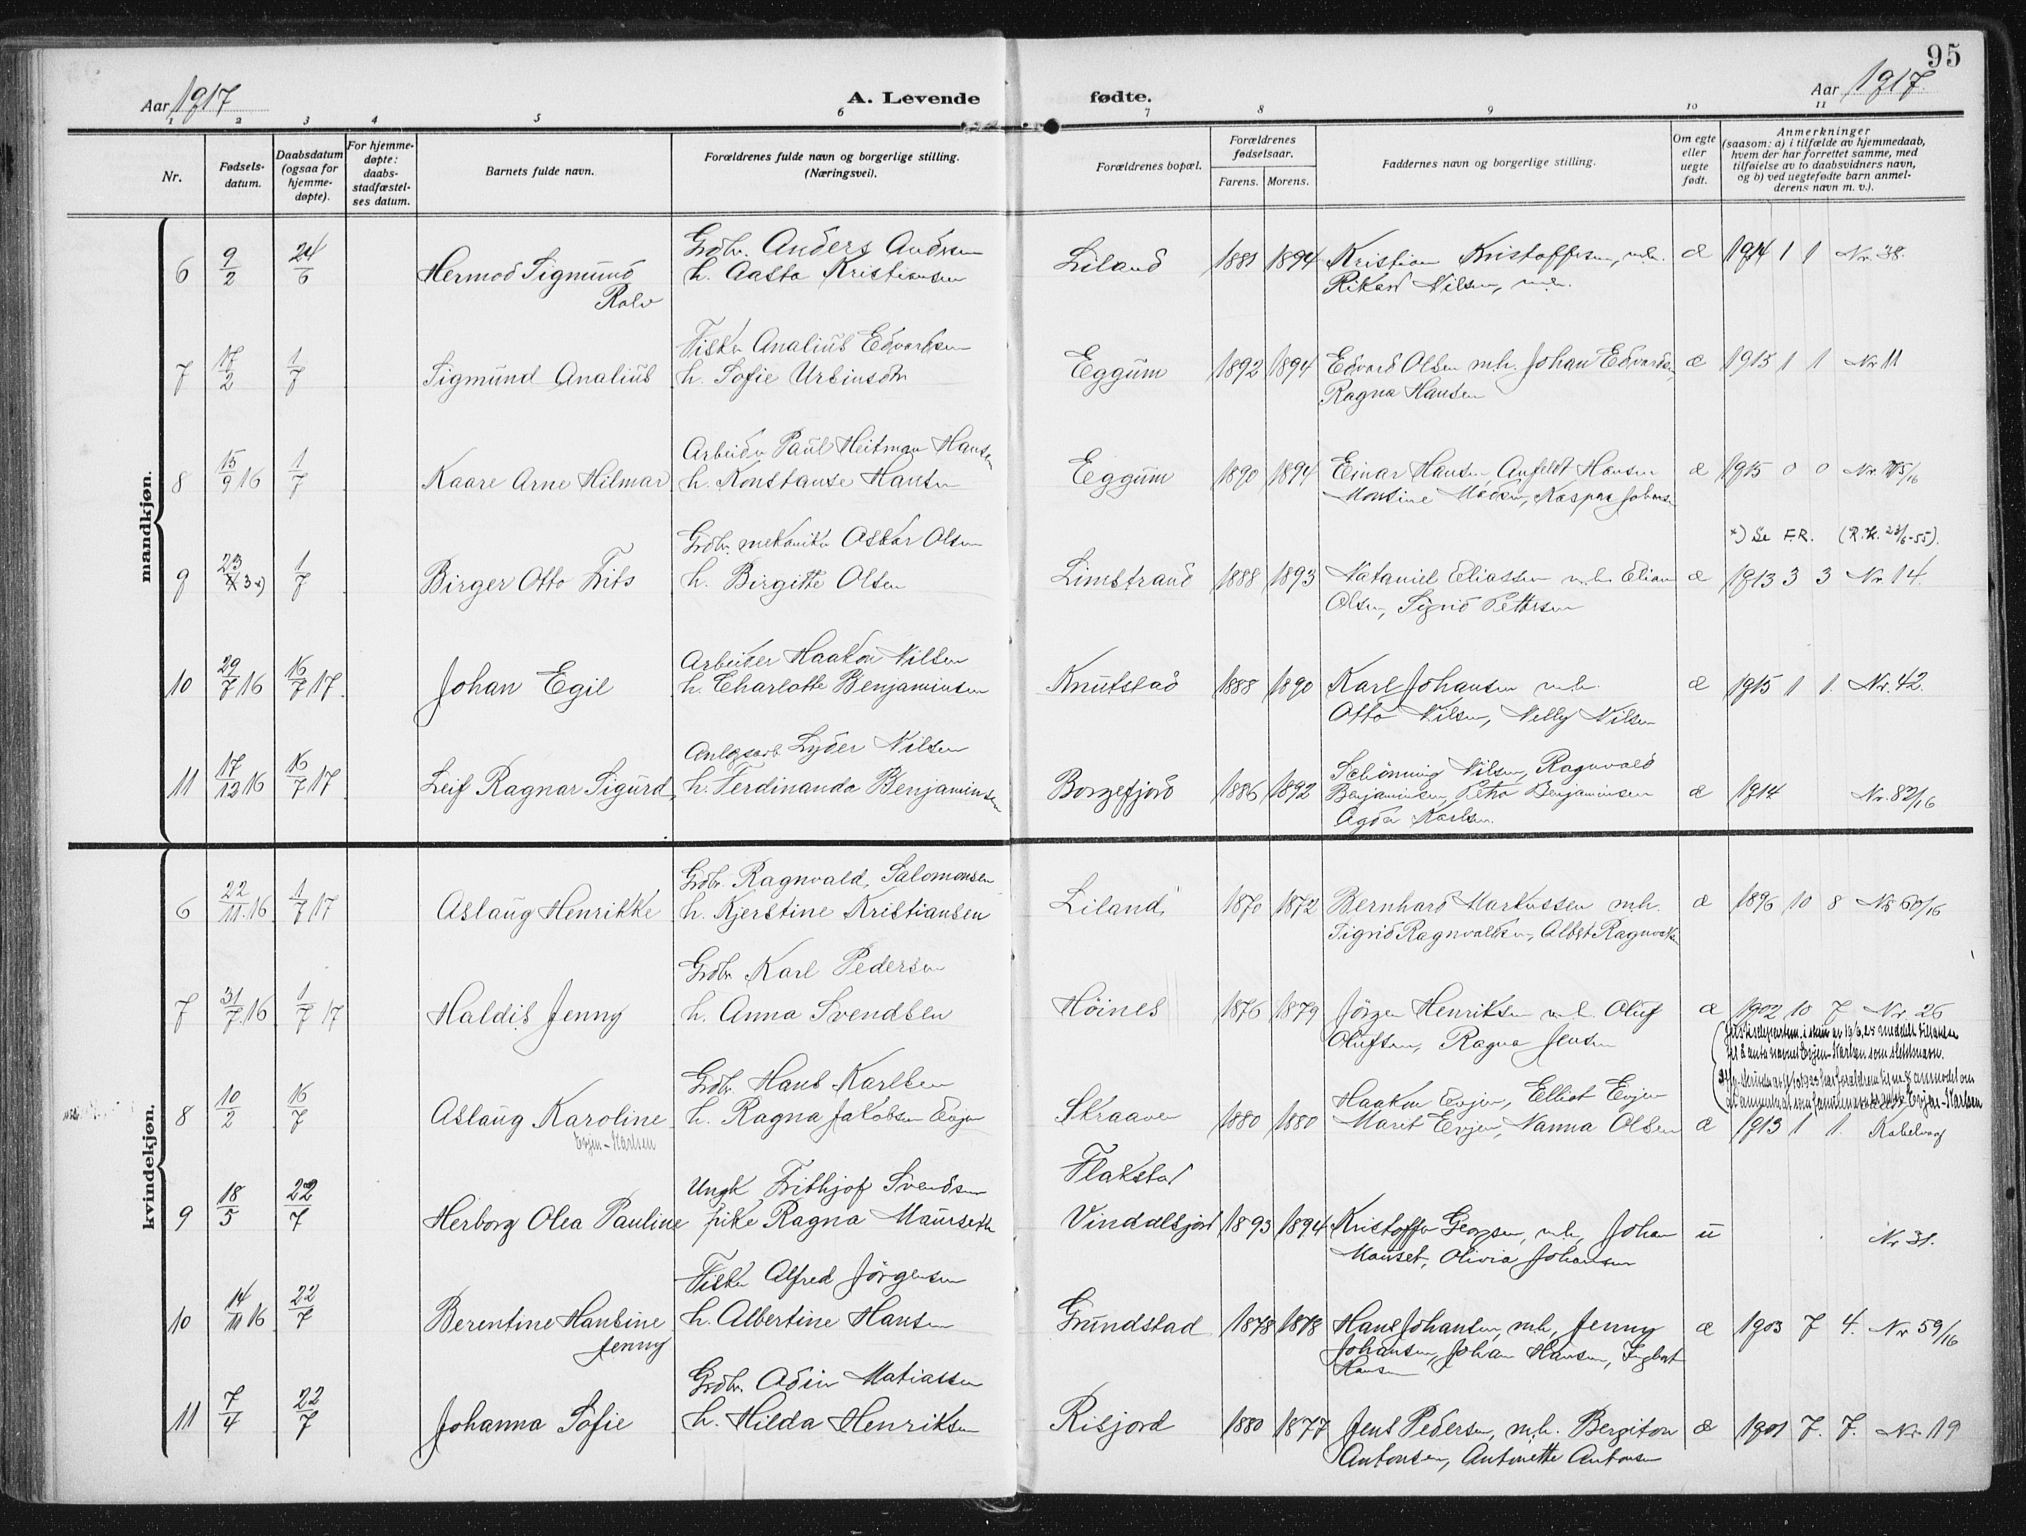 95
Aar 1917 A. Levende fødte. Aar 1917.
1 2 3 4 5 6 7 8 9 10 11
Nr. Fødsels-datum. Daabsdatum (ogsaa for hjemme-døpte). For hjemme-døpte: daabs-stadfæstel-ses datum. Barnets fulde navn. Forældrenes fulde navn og borgerlige stilling. (Næringsvei). Forældrenes bopæl. Forældrenes fødselsaar. Farens. Morens. Faddernes navn og borgerlige stilling. Om egte eller uegte født. Anmerkninger (saasom: a) i tilfælde av hjemmedaab, hvem der har forrettet samme, med tilføielse av to daabsvidners navn, og b) ved uegtefødte barn anmel-derens navn m. v.).
mandkjøn.
Grdbr. Anders Andersen
6 9/2 24/6 Hermod Sigmund h. Aasta Kristiansen Liland 1881 1894 Kristian Kristoffersen, m.h. æ 1914 1 1 Nr. 38.
Rolv Rikard Nilsen, m.h.
Fisker Analius Edvardsen
7 17/2 1/7 Sigmund Analius h. Sofie Urbinsdtr Eggum 1892 1894 Edvard Olsen m.h. Johan Edvardsen, æ 1915 1 1 Nr 11
Ragna Hansen
Arbeider Paul Heitman Hansen
8 15/9 16 1/7 Kaare Arne Hilmar h. Konstanse Hansen Eggum 1890 1894 Einar Hansen, Anfeldt Hansen æ 1915 0 0 Nr.
Montine Madsen, Kaspara Johansen
Grdbr. mekaniker Oskar Olsen *) Se F.R. (R.K. 23/6-55).
9 23/3 *) 1/7 Birger Otto Frits h. Birgitte Olsen Limstrand 1888 1893 Nataniel Eliassen m.h. Elian æ 1913 3 3 Nr. 14.
Olsen, Sigrid Pettersen
Arbeider Haakon Nilsen
10 29/7 16 16/7 17. Johan Egil h. Charlotte Benjaminsen Knutstad 1888 1890 Karl Johansen m.h. æ 1915 1 1. Nr. 42.
Otto Nilsen, Nelly Nilsen
Anlgsarb Lyder Nilsen
11 17/12 16 16/7 17 Leif Ragnar Sigurd h. Ferdinanda Benjaminsen Borgefjord 1886 1892 Schønning Nilsen, Ragnvald
Benjaminsen, Petra Benjaminsen æ 1914 Nr. 82/16
Agda Karlsen.
kvindekjøn.
Grdbr. Ragnvald Salomonsen
6 22/11. 16 1/7 17 Aslaug Henrikke h. Kjerstine Kristiansen Liland 1870 1872 Bernhard Markussen m.h. æ 1896 10 8 Nr 60/16
Sigrid Ragnvaldsen, Albert Ragnvaldsen
Grdbr Karl Pedersen
7 31/7. 16 1/7 17 Haldis Jenny h. Anna Svendsen Höines 1876 1879 Jörgen Henriksen m.h. Oluf æ 1902 10 7 Nr. 26
Olufsen, Ragna Jensen
Grdbr. Hans Karlsen
8 10/2 16/7 Aslaug Karoline h. Ragna Jakobsen Evjen Skraaven 1880 1880 Haakon Evjen, Elliot Evjen
Evjen-Karlsen Maret Evjen, Nanna Olsen æ 1913 1 1. Kabelvaag
Ungk Frithjof Svendsen Flakstad
9 18/5 22/7 Herborg Olea Pauline pike Ragna Maurseth Vindalsjord 1893 1894 Kristoffer Georgsen, m.h, Johan u Nr 31.
Maurset, Olivia Johansen
Fisker Alfred Jörgensen
10 14/11 16 22/7 Berentine Hansine h. Albertine Hansen Grundstad 1878 1878 Hans Johansen, m.h, Jenny æ 1903 7 4. Nr 59/16
Jenny Johansen, Johan Hansen, Ingbert
Hansen
Grdbr. Adin Matiassen
11 7/4 22/7 Johanna Sofie h. Hilda Henriksen Risjord 1880 1877 Jens Pedersen, m.h. Bergiton æ 1901 7. 7. Nr 19
Antonsen, Antonette Antonsen